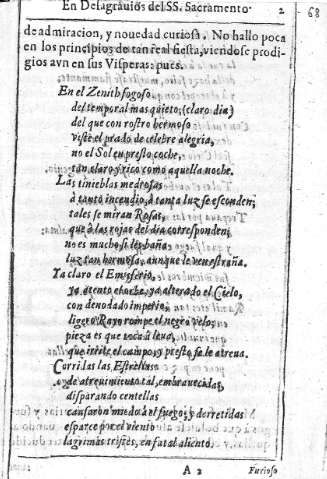 En Desagravios del SS. Sacramento. 2 68
de admiracion, y novedad curiosa. No hallo poca
en los principios de tan real fiesta, viendose prodi-
gios aun en sus Visperas: pues.
En el Zenith fogoso
del temporal mas quieto, (claro dia)
del que con rostro hermoso
viste el prado de celebre alegria,
no el Sol en presto coche,
tan claro y rico como aquella noche.
Las tinieblas medrosas
à tanto incendio, à tanta luz se esconden;
tales se miran Rosas,
que à las rojas del dia corresponden;
no es mucho si les baña
luz tan hermosa, aunque le ven estraña.
Ya claro el Emisferio,
ya atento ya alterado el Cielo,
con denodado imperio,
ligero Rayo rompe el negro velo;
pieza es que toca à leva,
que irrite el campo, y presto se le atreva.
Corridas las Estrellas
de atrevimiento tal, embravecidas,
disparando centellas
cansaron miedo à el fuego; y derretidas
esparce por el viento
lagrimas tristes, en fatal aliento.
A 2 Furioso